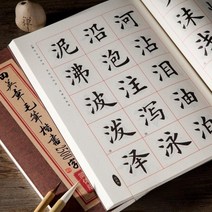 河沾泪油泊
沿泡注泻泳
泥沸波泼泽
田英章毛笔楷书